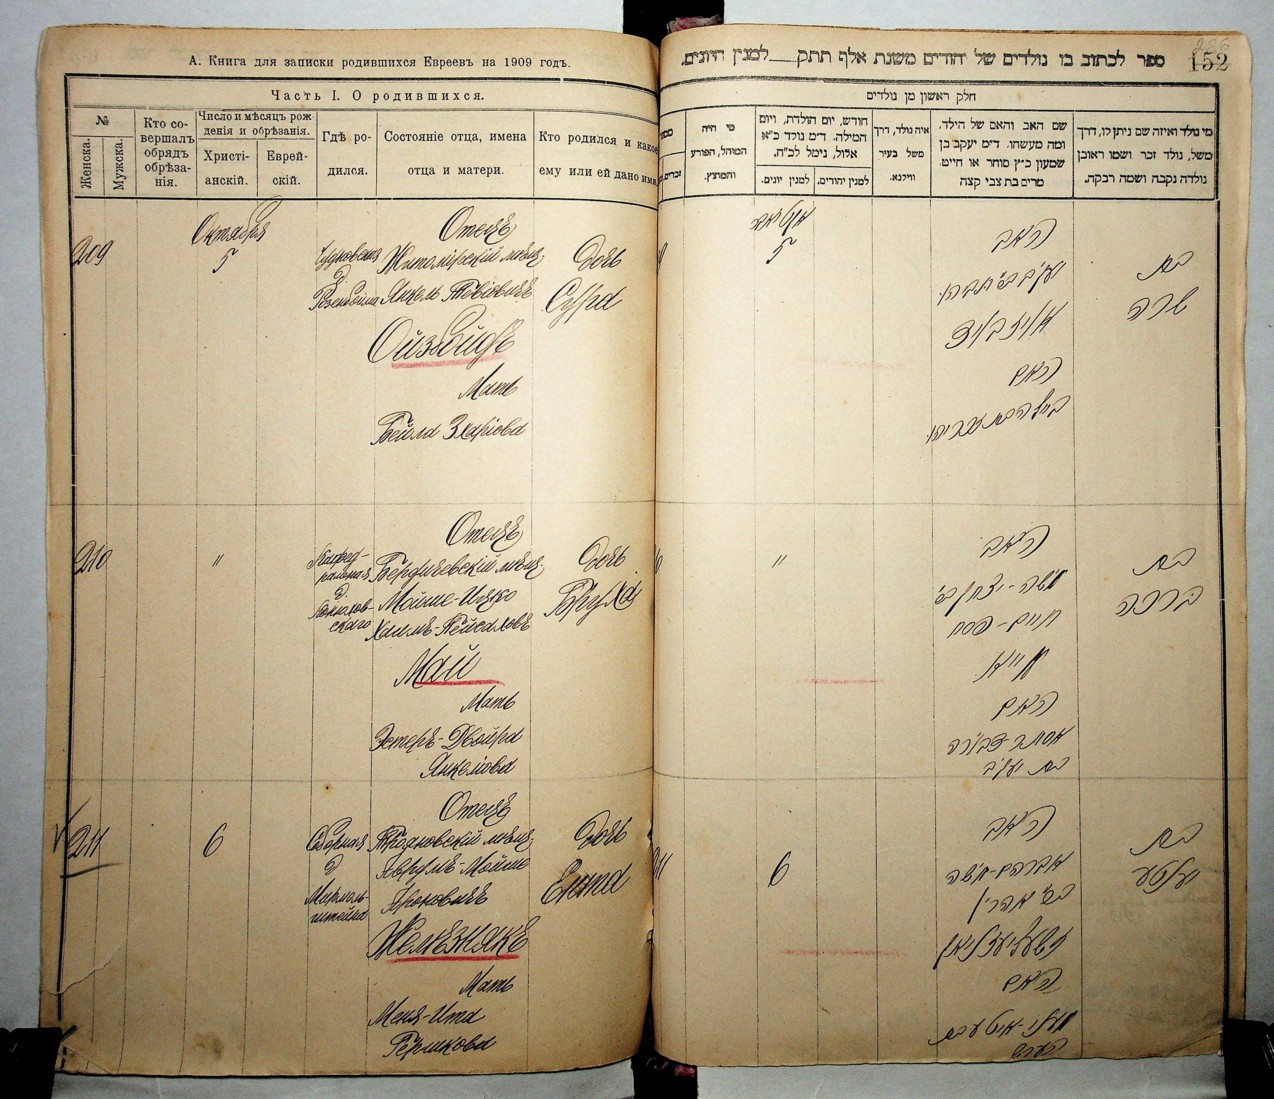 А. Книга для записки родившихся Евреевъ на 1909 годъ.
Часть I. О родившихся.
№
Женска.
Мужска.
Кто со-
вершалъ
обрядъ
обрѣза-
нія.
Число и мѣсяцъ рож-
денія и обрѣзанія.
Христі-
анскій.
Еврей-
скій.
Гдѣ ро-
дился.
Состояніе отца, имена
отца и матери.
Кто родился и какое
ему или ей дано имя.
209
Октября
5
Чудновская
д
Отецъ
Житомірскій мѣщ.
Янкель Тевіовичъ
Ойзбойдъ
Мать
Бейла Зхаріова
Дочь
Сура
210
"
Кафед-
ральная
д.
Отецъ
Бердичевскій мѣщ.
Мойше-Ицко
Хаимъ-Пейсаховъ
Май
Мать
Эстеръ-Двойра
Янкеліова
Дочь
Бруха
211
6
Соборная
д
Отецъ
Трояновскій мѣщ.
Аврумъ-Мойше
Ароновичъ
Желѣзнякъ
Мать
Меня-Ита
Гершкова
Дочь
Ента
ספר לכתוב בו נולדים של יהודים משנת אלף תתק___למנין היונים.
152
חלק ראשון מן נולדים
מי נולד ואיזה שם ניתן לו, דרך
משל, נולד זכר ושמו ראובן
נולדה נקבה ושמה רבקה.
שם האב והאם של הילד,
ומה מעשהו. ד״מ יעקב בן
שמעון כ״ץ סוחר או חייט.
מרים בת צבי קצה
איה נולד, דרך
משל בעיר
ווילנא.
חודש, יום הולדת, ויום
המילה. ד״מ נולד כ״א
אלול, נימל לכ״ח.
למנין יהודים.
למנין יונים.
מי היה
המוהל, הפורע
והמוצץ.
5
האב
האם
בת
שרה
"
האב
משה-יצחק ב״
חיים-פסח
מייא
האם
אסתר-דבורה
בת יעקב
בת
ברכה
6
האב
אברהם-משה
ב״ אהרן
האם
בת
יענטע